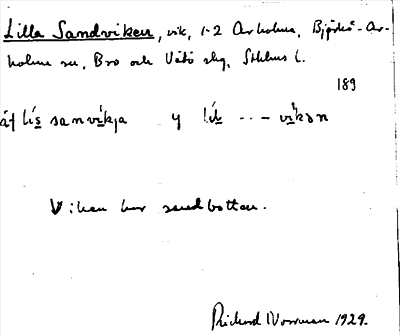 Lilla Sandviken, vik, 1-2 Arholma, Björkö-Ar-
holma sn, Bro och Vätö skg, Sthlms l.
189
åt lís sanvíkja y líl ... - víkən
Viken har sandbotten.
Richard Norrman 1929.